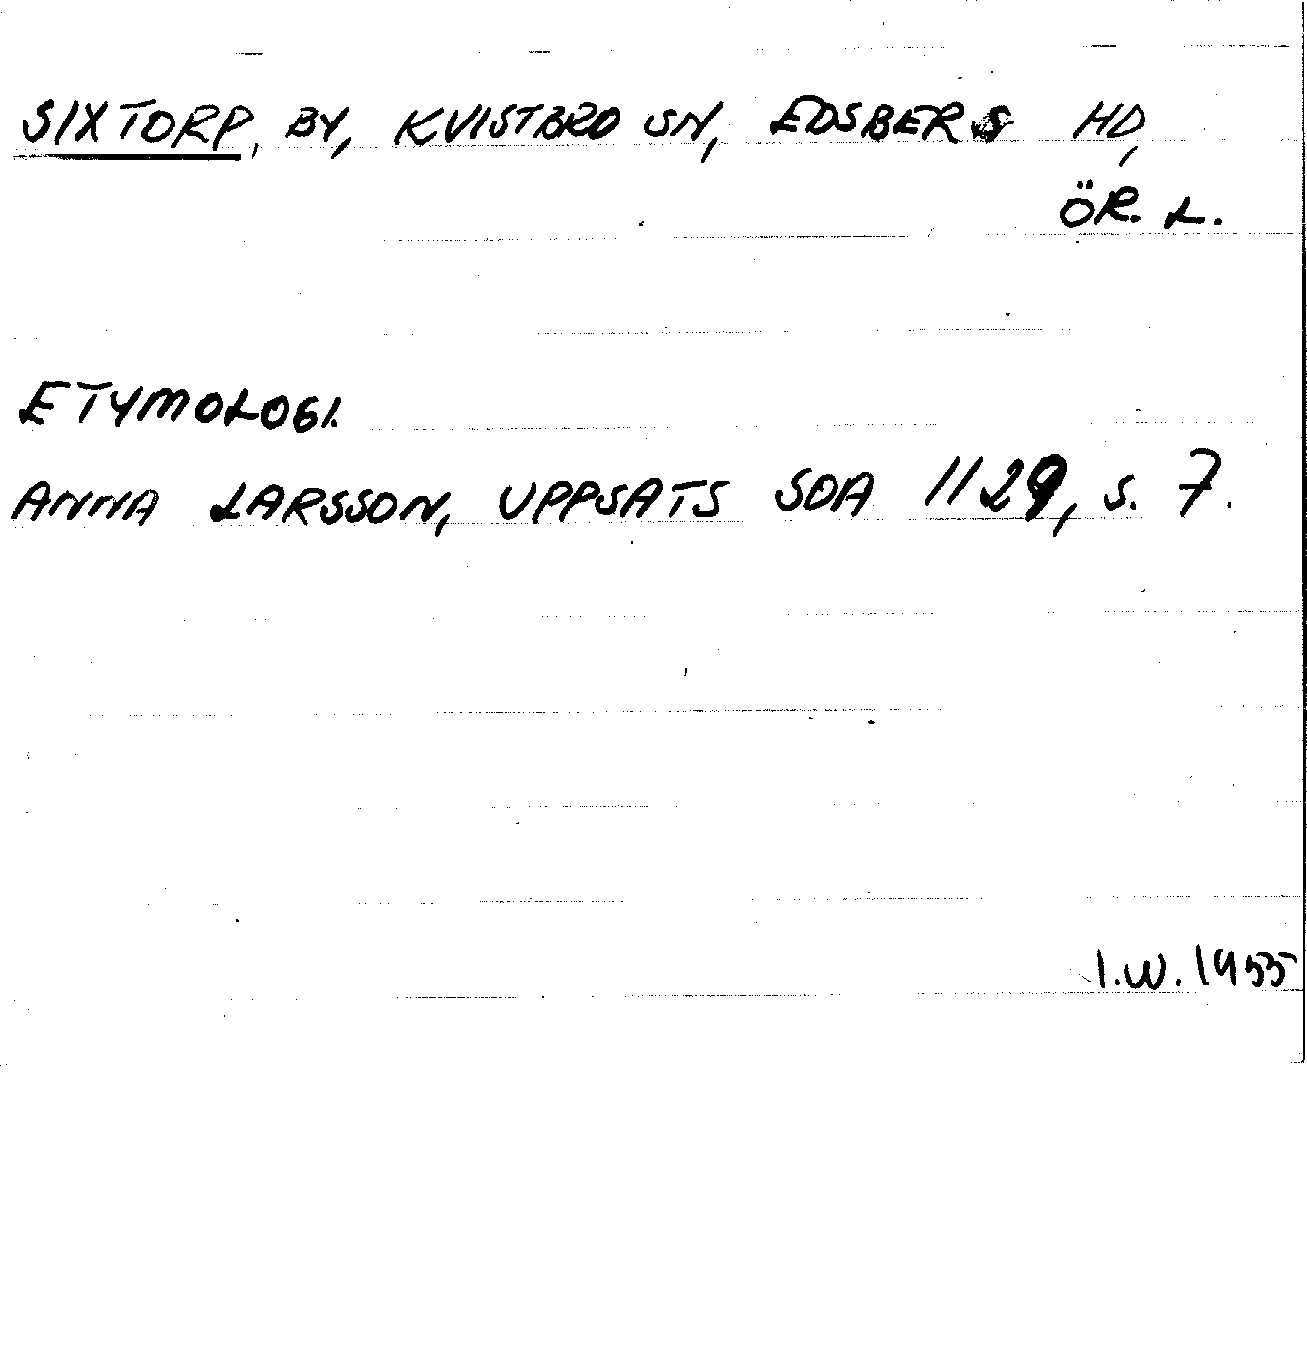 SIXTORP, BY, KVISTBRO SN, EDSBERGS HD,
ÖR. L.
ETYMOLOGI.
ANNA LARSSON, UPPSATS SOA 1129, S. 7.
I.W. 1955